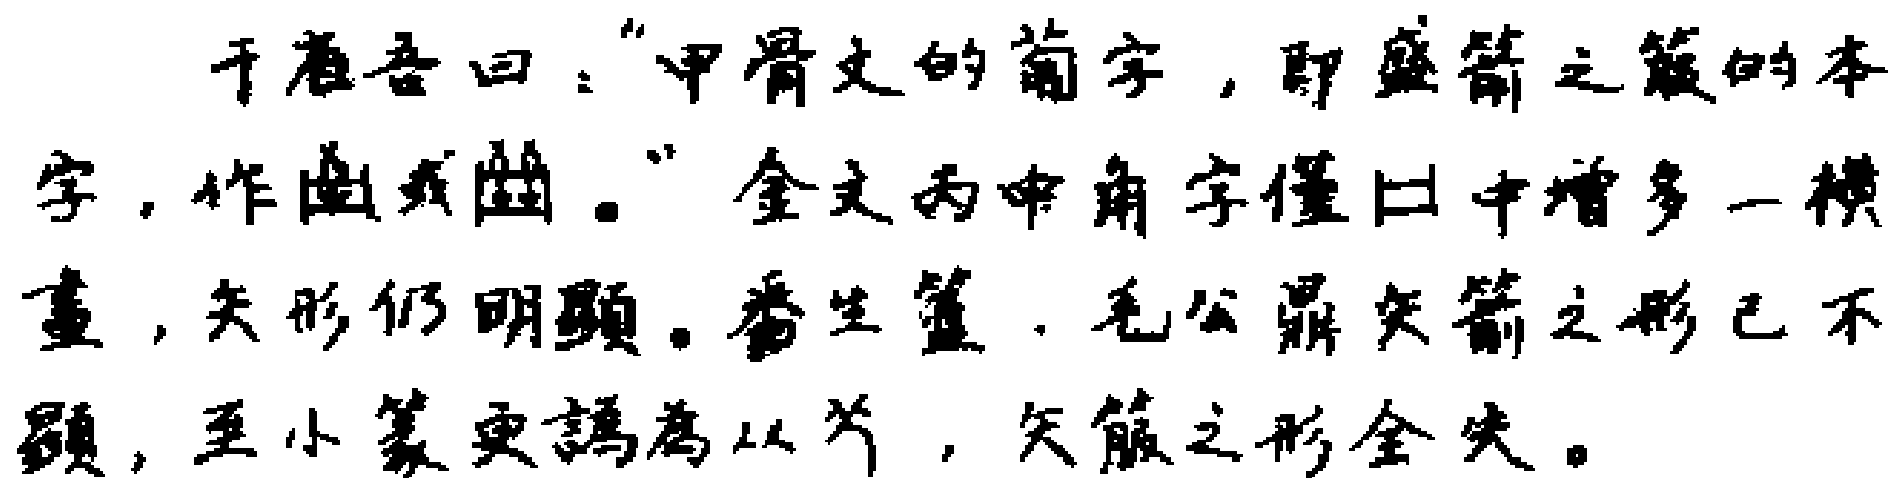 于省吾曰：“甲骨文的葡字，即盛箭之箙的本
字，作或。”金文丙申角字僅口中增多一橫
畫，矢形仍明顯。番生簋．毛公鼎矢箭之形已不
顯，至小篆更譌為从，矢箙之形全失。